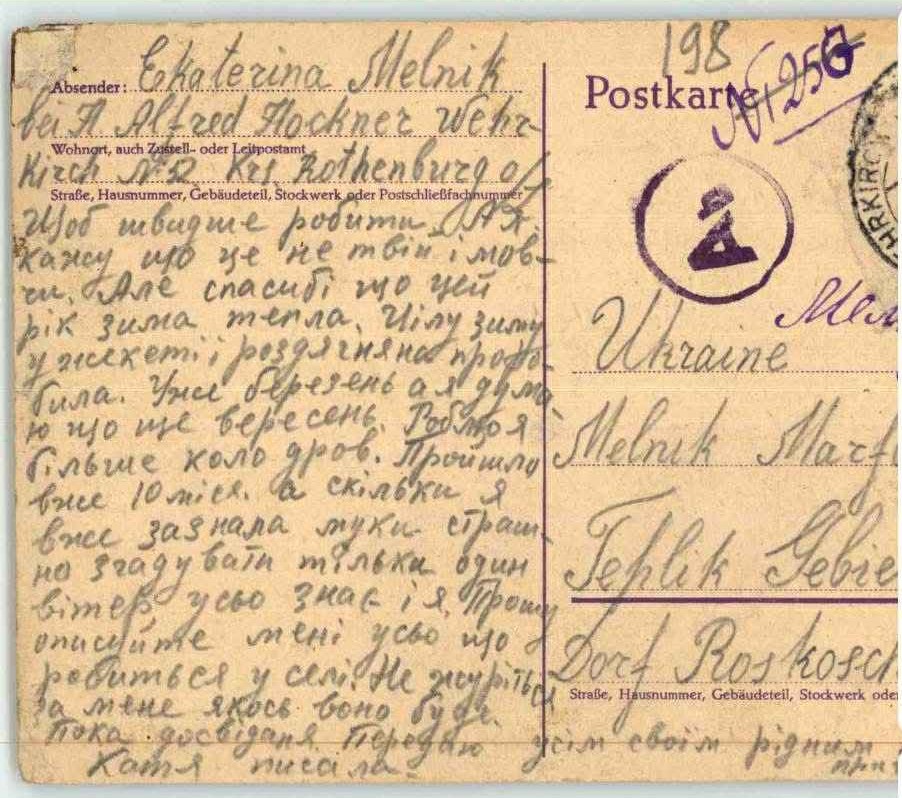 198
Postkarte
№ 256
Absender: Ekaterina Melnik
bei A Alfred Hockner Wehr-
Wohnort, auch Zustell- oder Leitpostamt
kirch №32 Krs Rothenburg o/
Straße, Hausnummer, Gebäudeteil, Stockwerk oder Postschließfachnummer
Щоб швидше робити. А я
кажу що це не твій і мов-
чи. Але спасибі що цей
рік зима тепла. Цілу зиму
у жекеті і роздягняна пробо-
била. Уже березень а я дума-
ю що ще вересень. Роблю я
більше коло дров. Пройшло
вже 10 міся. а скільки я
вже зазнала муки страш-
но згадувати тільки один
вітер усьо знає і я. Прошу
описуйте мені усьо що
робиться у селі. Не журіться
за мене якось воно буде.
Пока досвіданя. Передаю усім своїм рідним
Катя писала.
Мел
Ukraine
Melnik Marf
Teplik Gebie
Dorf Roskosch
Straße, Hausnummer, Gebäudeteil, Stockwerk oder